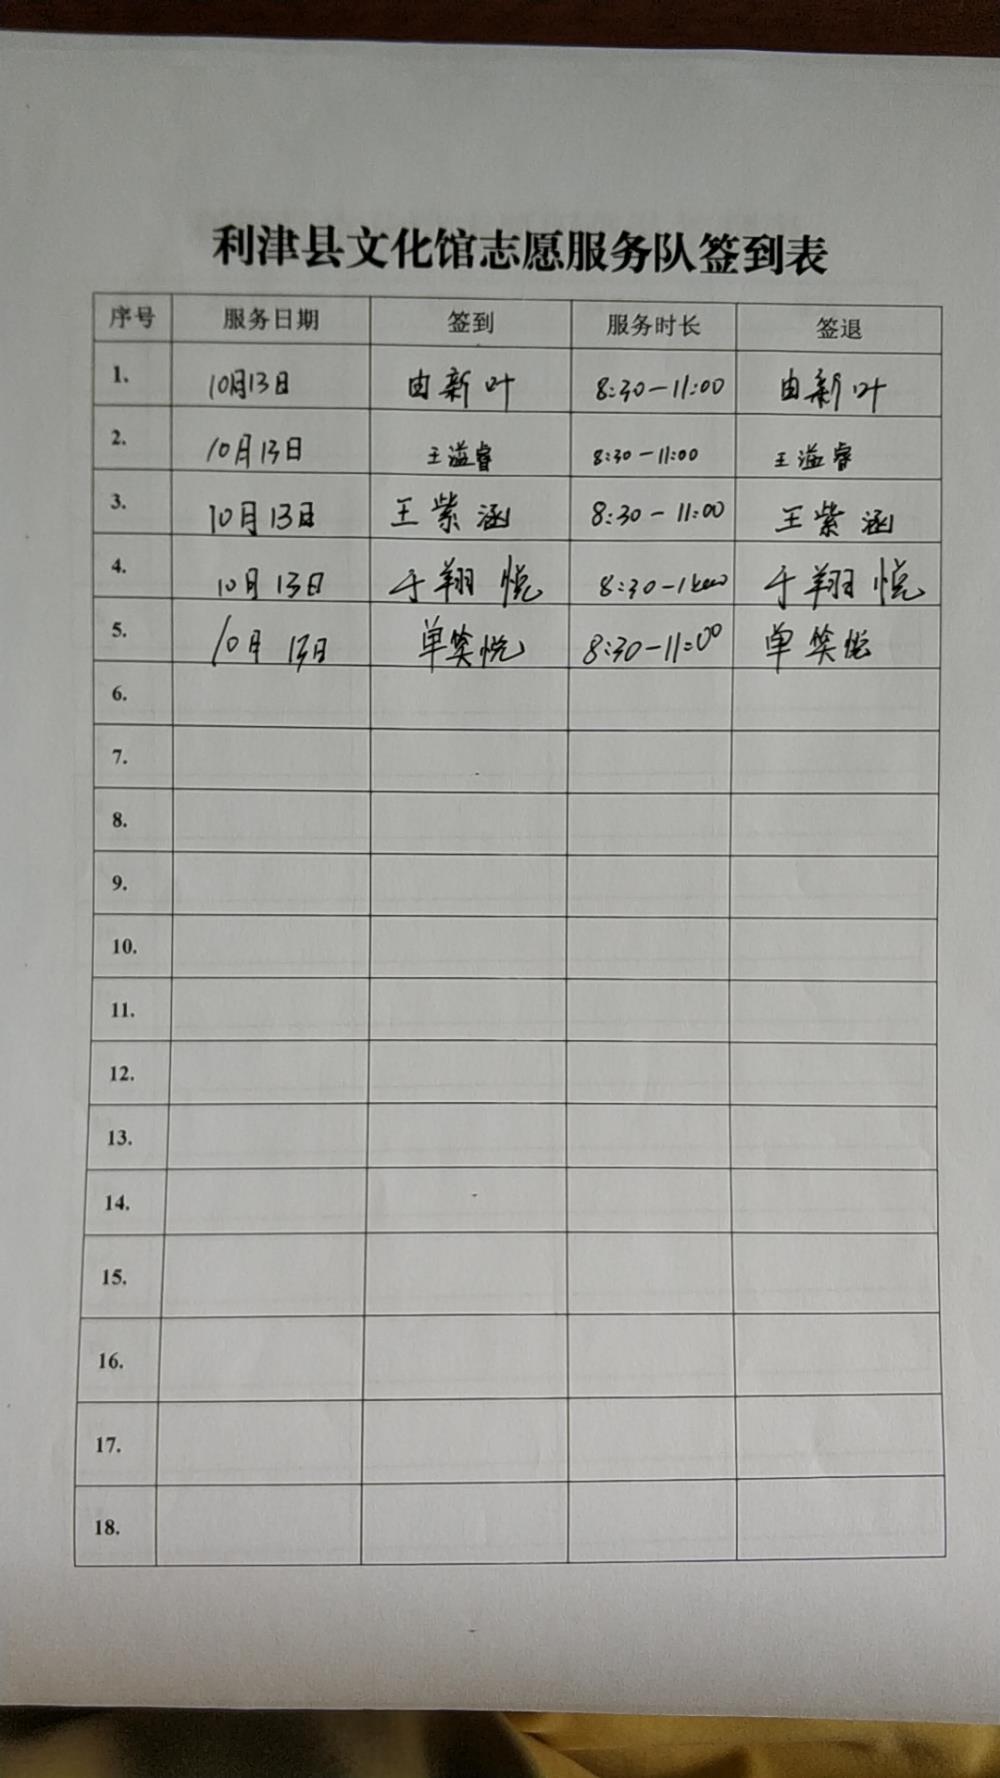 利津县文化馆志愿服务队签到表
序号 服务日期 签到 服务时长 签退
1. 10月13日 由新叶 8:30-11:00 由新叶
2. 10月13日 王溢睿 8:30-11:00 王溢睿
3. 10月13日 王紫涵 8:30-11:00 王紫涵
4. 10月13日 于翔悦 8:30- 于翔悦
5. 10月13日 单笑悦 8:30-11:00 单笑悦
6.
7.
8.
9.
10.
11.
12.
13.
14.
15.
16.
17.
18.